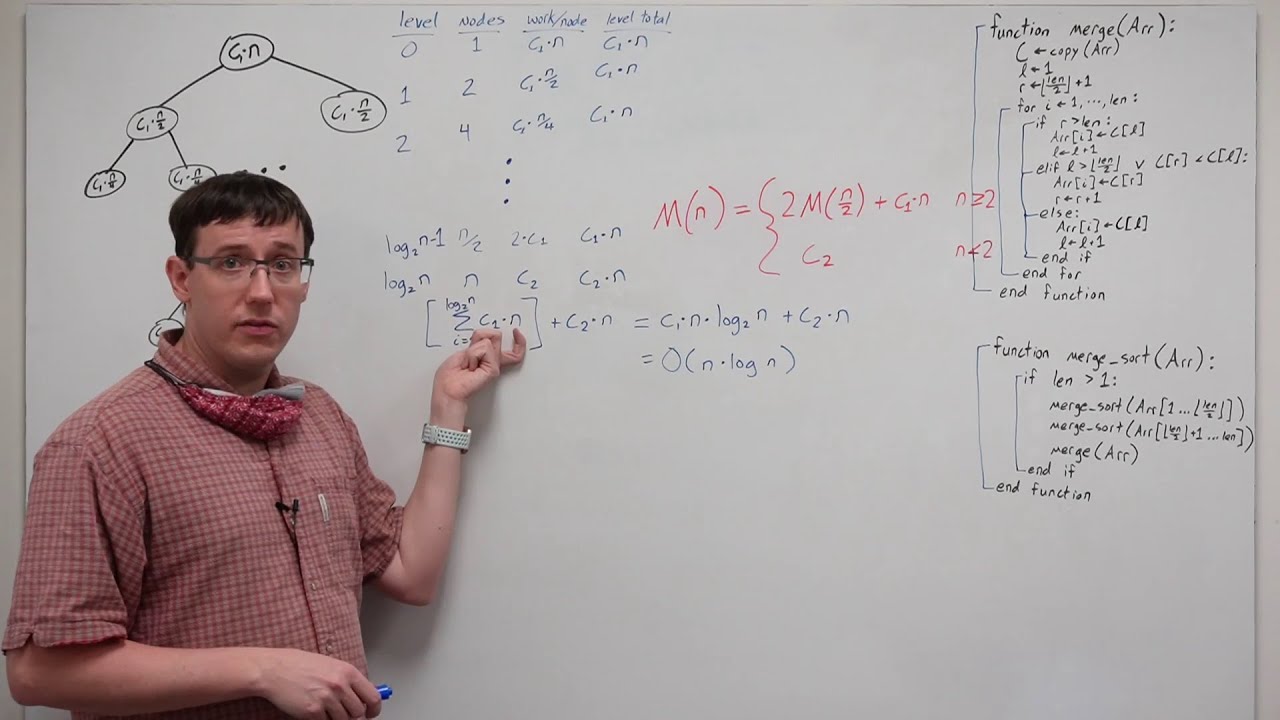 C₁·n
C₁·n/2
C₁·n/2
C₁·n/4
level nodes work/node level total
0 1 C₁·n C₁·n
1 2 C₁·n/2 C₁·n
2 4 C₁·n/4 C₁·n
log₂n-1 n/2 2·C₁ C₁·n
log₂n n C₂ C₂·n
[ log₂n ∑ i= C₁·n ] + C₂·n = C₁·n·log₂n + C₂·n
= O(n·log n)
M(n) = { 2M(n/2) + C₁·n n≥2
C₂ n<2
function merge(Arr):
C ← copy(Arr)
l ← 1
r ← ⌊len/2⌋+1
for i ← 1,...,len:
if r > len:
Arr[i] ← C[l]
l ← l+1
elif l > ⌊len/2⌋ ∨ C[r] < C[l]:
Arr[i] ← C[r]
r ← r+1
else:
Arr[i] ← C[l]
l ← l+1
end if
end for
end function
function merge_sort(Arr):
if len > 1:
merge_sort(Arr[1...⌊len/2⌋])
merge_sort(Arr[⌊len/2⌋+1...len])
merge(Arr)
end if
end function